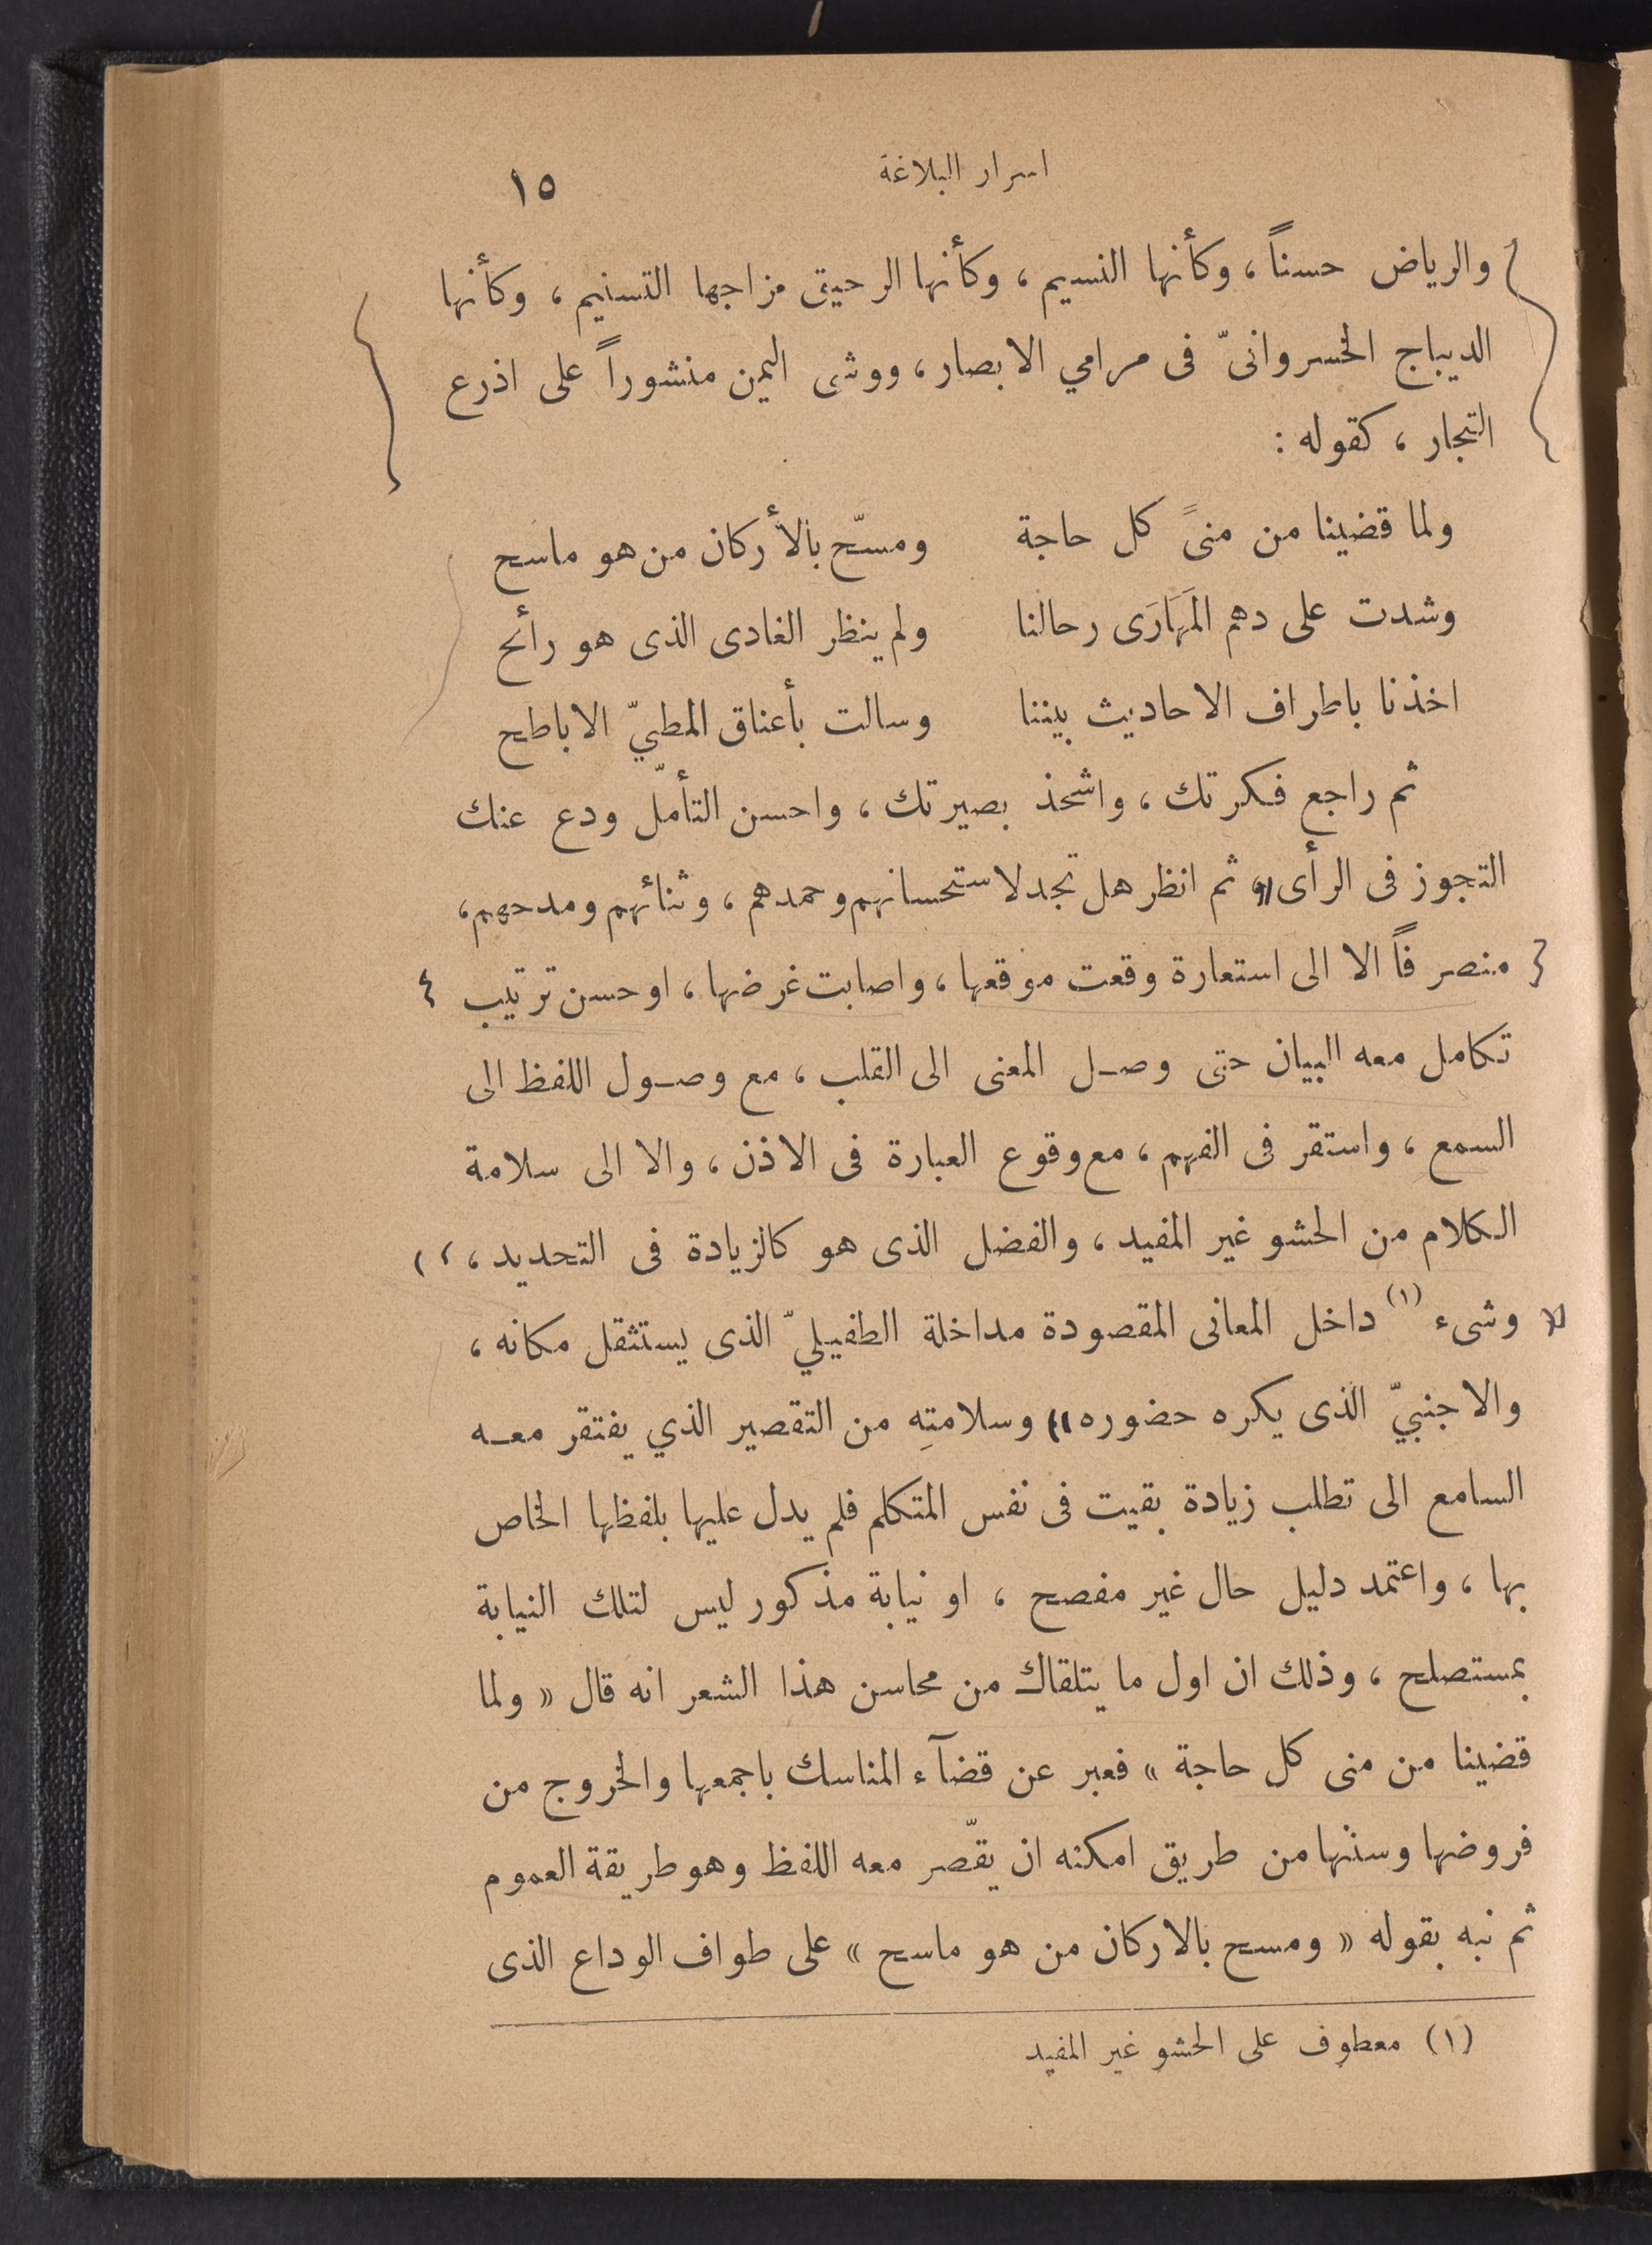 اسرار البلاغة ١٥
والرياض حسناً ، وكأنها النسيم ، وكأنها الرحيق مزاجها التسنيم ، وكأنها
الديباج الخسروانىّ فى مرامي الابصار ، ووشى اليمن منشوراً على اذرع
التجار ، كقوله :
ولما قضينا من منىً كل حاجة ومسّح بالأركان من هو ماسح
وشدت على دهم المَهَارَى رحالنا ولم ينظر الغادى الذى هو رأئح
اخذنا باطراف الاحاديث بيننا وسالت بأعناق المطيّ الاباطح
ثم راجع فكرتك ، واشحذ بصيرتك ، واحسن التأملّ ودع عنك
التجوز فى الرأى ، ثم انظر هل تجد لاستحسانهم وحمدهم ، وثنائهم ومدحهم ،
منصرفاً الا الى استعارة وقعت موقعها ، واصابت غرضها ، او حسن ترتيب
تكامل معه البيان حتى وصل المعنى الى القلب ، مع وصول اللفظ الى
السمع ، واستقر فى الفهم ، مع وقوع العبارة فى الاذن ، والا الى سلامة
الكلام من الحشو غير المفيد ، والفضل الذى هو كالزيادة فى التحديد ،
وشىء (١) داخل المعانى المقصودة مداخلة الطفيليّ الذى يستثقل مكانه ،
والاجنبيّ الذى يكره حضوره ، وسلامتِه من التقصير الذي يفتقر معه
السامع الى تطلب زيادة بقيت فى نفس المتكلم فلم يدل عليها بلفظها الخاص
بها ، واعتمد دليل حال غير مفصح ، او نيابة مذكور ليس لتلك النيابة
بمستصلح ، وذلك ان اول ما يتلقاك من محاسن هذا الشعر انه قال « ولما
قضينا من منى كل حاجة » فعبر عن قضآء المناسك باجمعها والخروج من
فروضها وسننها من طريق امكنه ان يقّصر معه اللفظ وهو طريقة العموم
ثم نبه بقوله « ومسح بالاركان من هو ماسح » على طواف الوداع الذى
(١) معطوف على الحشو غير المفيد